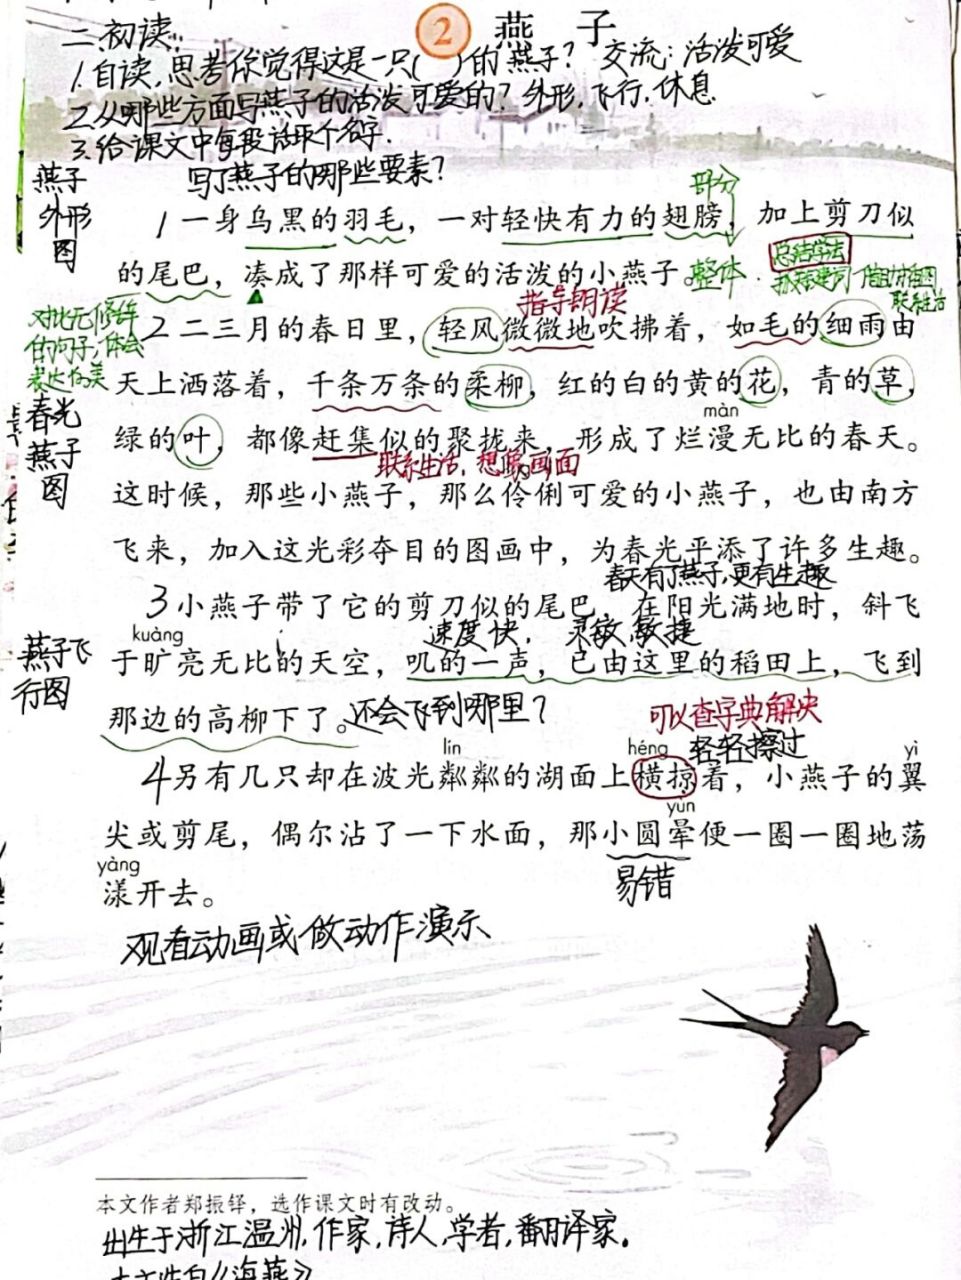 2 燕子
二初读:
1.自读,思考你觉得这是一只( )的燕子? 交流:活泼可爱
2.从哪些方面写燕子的活泼可爱的?外形,飞行,休息
3.给课文中每段话取个名字.
写了燕子的哪些要素?
燕子
外形
图
部分
1 一身乌黑的羽毛,一对轻快有力的翅膀,加上剪刀似
总结学法
的尾巴,凑成了那样可爱的活泼的小燕子。整体
抓关键词 借助插图
联系生活
指导朗读
对比无修饰
的句子,体会
表达的美
2 二三月的春日里,轻风微微地吹拂着,如毛的细雨由
天上洒落着,千条万条的柔柳,红的白的黄的花,青的草,
màn
绿的叶,都像赶集似的聚拢来,形成了烂漫无比的春天。
联系生活,想象画面
春光
燕子
图
这时候,那些小燕子,那么伶俐可爱的小燕子,也由南方
飞来,加入这光彩夺目的图画中,为春光平添了许多生趣。
春天有了燕子,更有生趣
3 小燕子带了它的剪刀似的尾巴,在阳光满地时,斜飞
kuàng
速度快, 灵敏,敏捷
燕子飞
行图
于旷亮无比的天空,叽的一声,已由这里的稻田上,飞到
那边的高柳下了。还会飞到哪里?
可以查字典解决
lín héng 轻轻擦过 yì
4 另有几只却在波光粼粼的湖面上横掠着,小燕子的翼
yùn
尖或剪尾,偶尔沾了一下水面,那小圆晕便一圈一圈地荡
yàng
漾开去。
易错
观看动画或做动作演示
本文作者郑振铎,选作课文时有改动。
出生于浙江温州,作家,诗人,学者,翻译家.
《海燕》